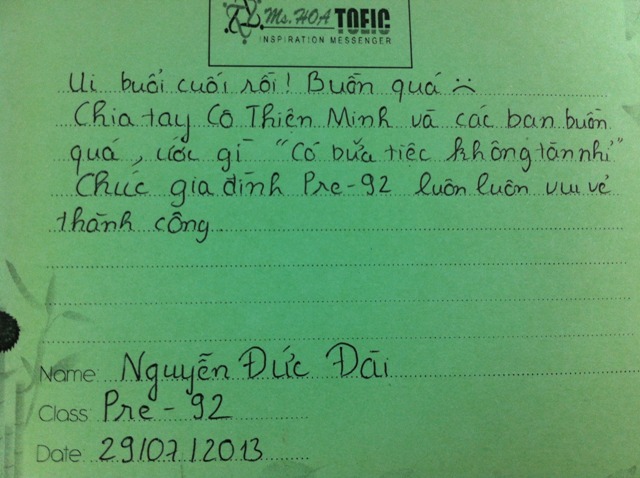 Ms. HOA TOEIC
INSPIRATION MESSENGER
Ui buổi cuối rồi! Buồn quá :(
Chia tay Cô Thiện Minh và các bạn buồn
quá, ước gì "Có bữa tiệc không tàn nhỉ"
Chúc gia đình Pre-92 luôn luôn vui vẻ
thành công.
Name: Nguyễn Đức Đài
Class: Pre-92
Date: 29/07/2013